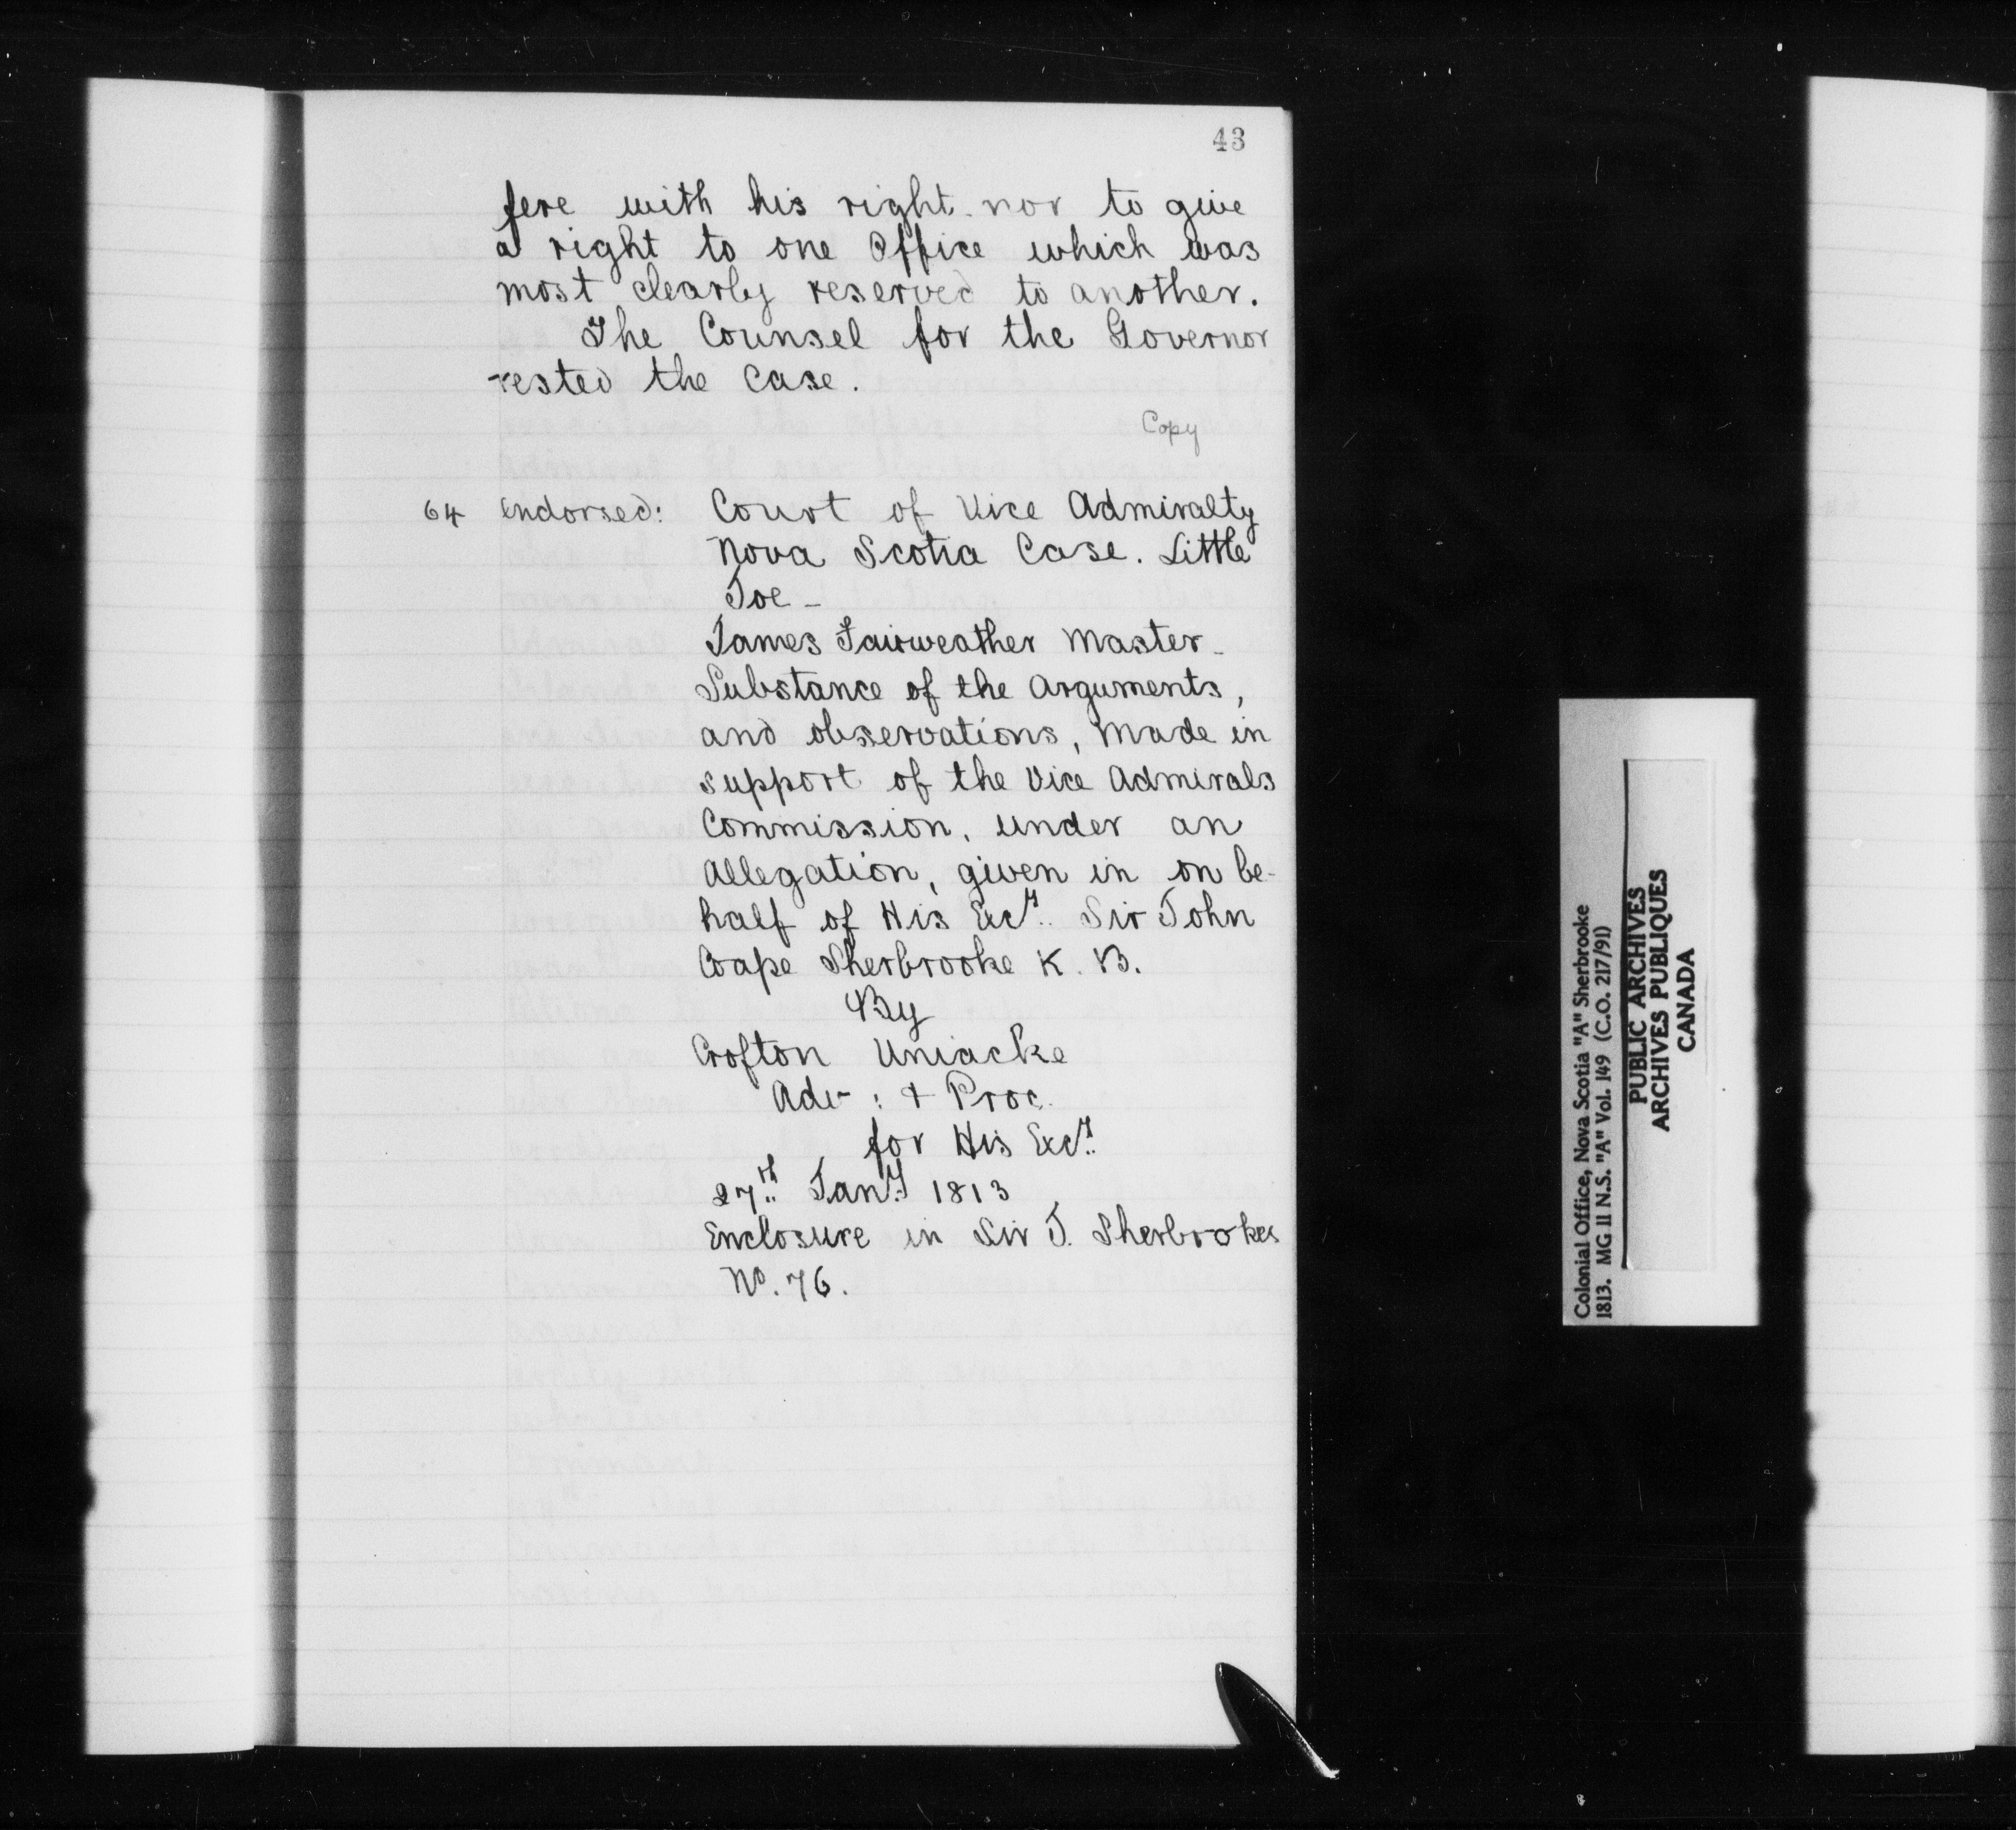 43
fere with his right nor to give
a right to one Office which was
most clearly reserved to another.
The Counsel for the Governor
rested the case.
Copy
64 endorsed: Court of Vice Admiralty
Nova Scotia Case. Little
Joe -
James Fairweather Master -
Substance of the Arguments,
and observations, made in
support of the Vice Admirals
Commission, under an
Allegation, given in on be-
half of His Excy. Sir John
Coape Sherbrooke K. B.
By
Crofton Uniacke
Adv : & Proc.
for His Excy.
27th Jany 1813
Enclosure in Sir J. Sherbrookes
No. 76.
Colonial Office, Nova Scotia "A" Sherbrooke
1813. MG 11 N.S. "A" Vol. 149 (C.O. 217/91)
PUBLIC ARCHIVES
ARCHIVES PUBLIQUES
CANADA